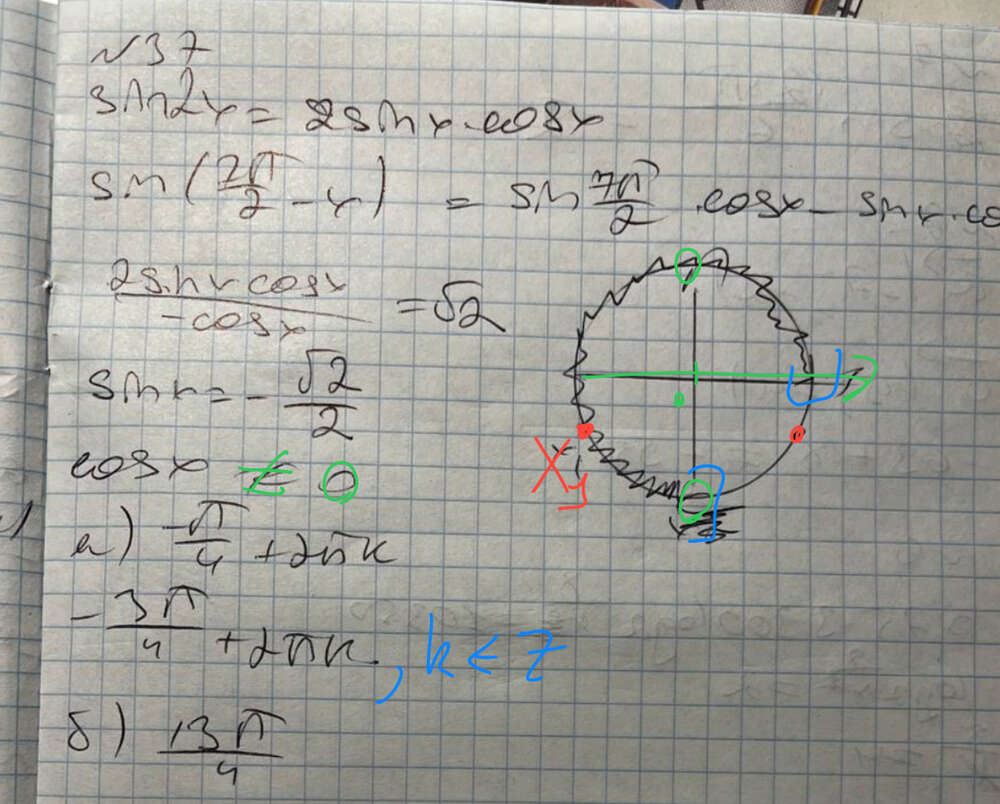 №37
sin2x = 2sinx·cosx
sin(7π/2 - x) = sin 7π/2 · cosx - sinx·co
2sinx cosx / -cosx = √2
sinx = - √2/2
cosx ≠ 0
а) -π/4 + 2πk
- 3π/4 + 2πk, k ∈ Z
б) 13π/4